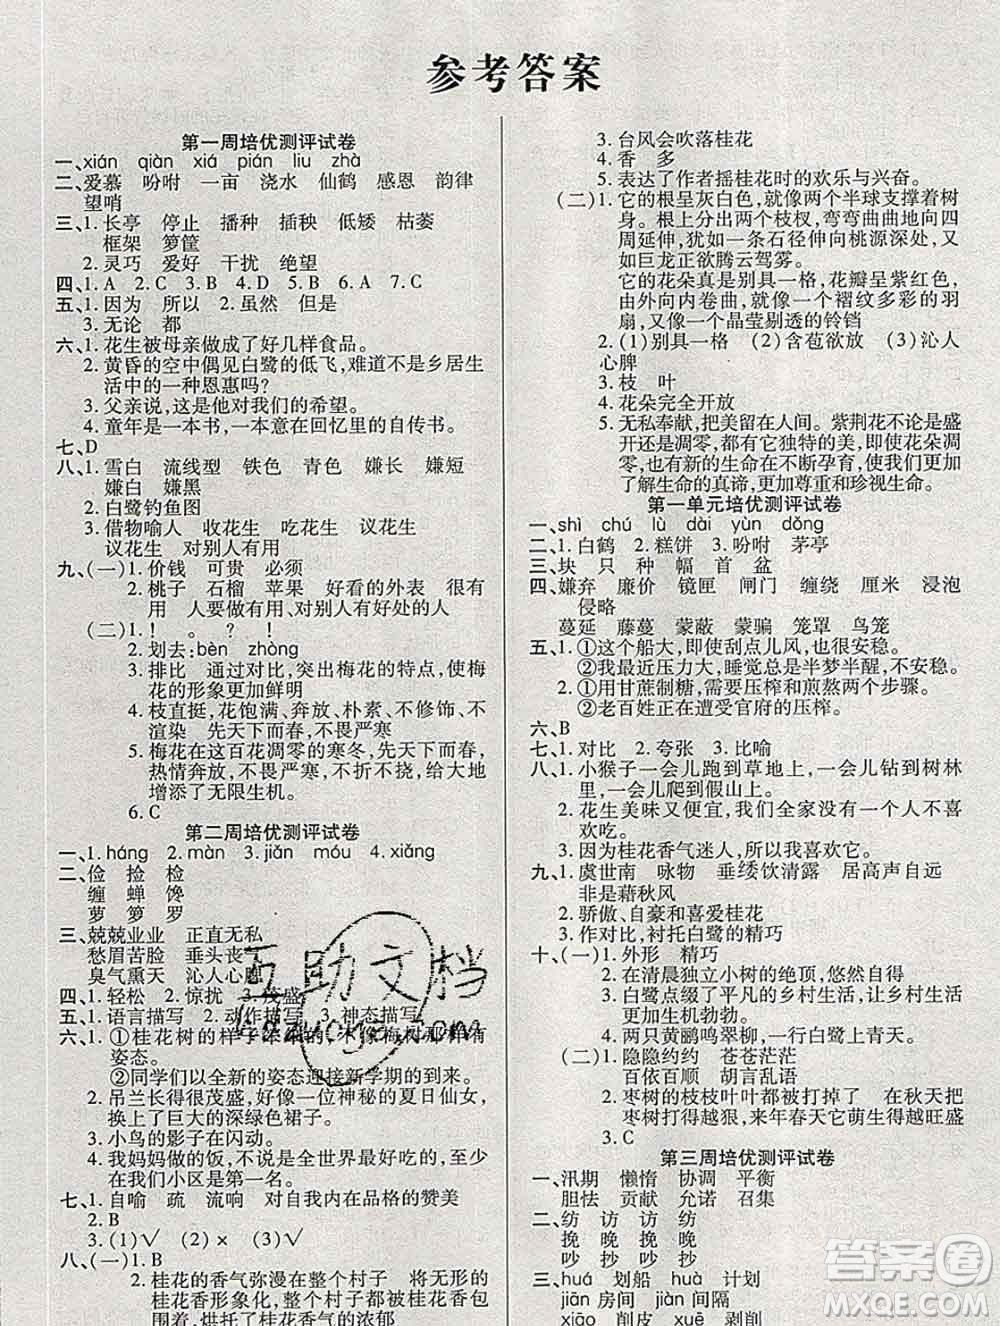 参考答案
第一周培优测评试卷
一、xián qiàn xiá pián liu zhà
二、爱慕 吩咐 一亩 浇水 仙鹤 感恩 韵律
望哨
三、1. 长亭 停止 播种 插秧 低矮 枯萎
框架 箩筐
2. 灵巧 爱好 干扰 绝望
四、1. A 2. C 3. B 4. D 5. B 6. A 7. C
五、1. 因为 所以 2. 虽然 但是
3. 无论 都
六、1. 花生被母亲做成了好几样食品。
2. 黄昏的空中偶见白鹭的低飞,难道不是乡居生
活中的一种恩惠吗?
3. 父亲说,这是他对我们的希望。
4. 童年是一本书,一本意在回忆里的自传书。
七、D
八、1. 雪白 流线型 铁色 青色 嫌长 嫌短
嫌白 嫌黑
2. 白鹭钓鱼图
3. 借物喻人 收花生 吃花生 议花生
议花生 对别人有用
九、(一)1. 价钱 可贵 必须
2. 桃子 石榴 苹果 好看的外表 很有
用 人要做有用、对别人有好处的人
(二)1. ! 。 ? !
2. 划去:bèn zhòng
3. 排比 通过对比,突出梅花的特点,使梅
花的形象更加鲜明
4. 枝直挺,花饱满、奔放、朴素、不修饰、不
渲染 先天下而春、不畏严寒
5. 梅花在这百花凋零的寒冬,先天下而春,
热情奔放,不畏严寒,不折不挠,给大地
增添了无限生机。
6. C
第二周培优测评试卷
一、1. háng 2. màn 3. jiǎn móu 4. xiǎng
二、俭 捡 检
缠 蝉 馋
萝 箩 罗
三、兢兢业业 正直无私
愁眉苦脸 垂头丧
臭气熏天 沁人心
四、1. 轻松 2. 惊扰 3. 茂盛
五、1. 语言描写 2. 动作描写 3. 神态描写
六、1. ①桂花树的样子笨笨的,不像梅树那样有
姿态。
②同学们以全新的姿态迎接新学期的到来。
2. 吊兰长得很茂盛,好像一位神秘的夏日仙女,
换上了巨大的深绿色裙子。
3. 小鸟的影子在闪动。
4. 我妈妈做的饭,不说是全世界最好吃的,至少
在我们小区是第一名。
七、1. 自喻 疏 流响 对自我内在品格的赞美
2. B
3. (1)√ (2)× (3)√
八、(一)1. B
2. 桂花的香气弥漫在整个村子 将无形的
桂花香气变得有形,好像整个村子被包
围着,烘托了桂花香气的浓郁
3. 台风会吹落桂花
4. 香 多
5. 表达了作者摇桂花时的欢乐与兴奋。
(二)1. 它的根呈灰白色,就像两个半球支撑着树
身。根上分出两个枝杈,弯弯曲曲地向四
周延伸,犹如一条石径伸向桃源深处,又
如巨龙正欲腾云驾雾。
它的花朵真是别具一格,花瓣呈紫红色,
由外向内卷曲,就像一个褶纹多彩的羽
扇,又像一个晶莹剔透的铃铛
2. (1)别具一格 (2)含苞欲放 (3)沁人
心脾
3. 枝 叶
4. 花朵完全开放
5. 无私奉献,把美留在人间。紫荆花不论是盛
开还是凋零,都有它独特的美,即使花朵凋
零,也有新的生命在不断孕育,从而让我们了解
生命的真谛,更加尊重和珍视生命。
第一单元培优测评试卷
一、shì chú lù dài yùn dǒng
二、1. 白鹤 2. 糕饼 3. 吩咐 茅亭
三、块 只 种 幅 首 盆
四、嫌弃 廉价 镜匣 闸门 缠绕 厘米 浸泡
侵略
蔓延 藤蔓 蒙蔽 蒙骗 笼罩 鸟笼
五、1. ①这个船大,即使刮点儿风,也很安稳。
②我最近压力大,睡觉总是半梦半醒,不安稳。
2. ①用甘蔗制糖,需要压榨和煎熬两个步骤。
②老百姓正在遭受官府的压榨。
六、B
七、1. 对比 2. 夸张 3. 比喻
八、1. 小猴子一会儿跑到草地上,一会儿钻到树林
里,一会儿爬到假山上。
2. 花生美味又便宜,我们全家没有一个人不喜
欢吃。
3. 因为桂花香气迷人,所以我喜欢它。
九、1. 虞世南 咏物 垂緌饮清露 居高声自远
非是藉秋风
2. 骄傲、自豪和喜爱桂花
3. 作对比,衬托白鹭的精巧
十、(一)1. 外形 精巧
2. 在清晨独立小树的绝顶,悠然自得
3. 白鹭点缀了平凡的乡村生活,让乡村生活
更加生机勃勃。
4. 两只黄鹂鸣翠柳,一行白鹭上青天。
(二)1. 隐隐约约 苍苍茫茫
百依百顺 胡言乱语
2. 枣树的枝枝叶叶都入了迷 在秋天把
枣树打得越狠,来年春天它萌生得越旺盛
3. C
第三周培优测评试卷
一、汛期 懒惰 协调 平衡
胆怯 贡献 允诺 召集
二、纺 访 访 纺
挽 晚 晚 挽
吵 抄 抄 吵
三、huá 划船 huà 计划
jiān 房间 jiàn 间隔
xiāo 削皮 xuē 剥削
互助文档
huzuoye.com
答案圈
MXQE.COM